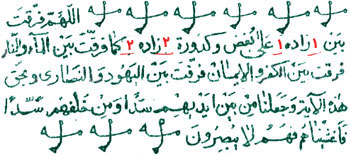 اللهم فرقت
بين ١ زاده ١ على بغض وكدورة ٢ زاده ٢ كما فرقت بين الماء والنار
فرقت بين الكفر والايمان فرقت بين اليهود والنصارى وبحق
هذه الآية وجعلنا من بين ايديهم سدًا ومن خلفهم سدًا
فاغشيناهم فهم لا يبصرون